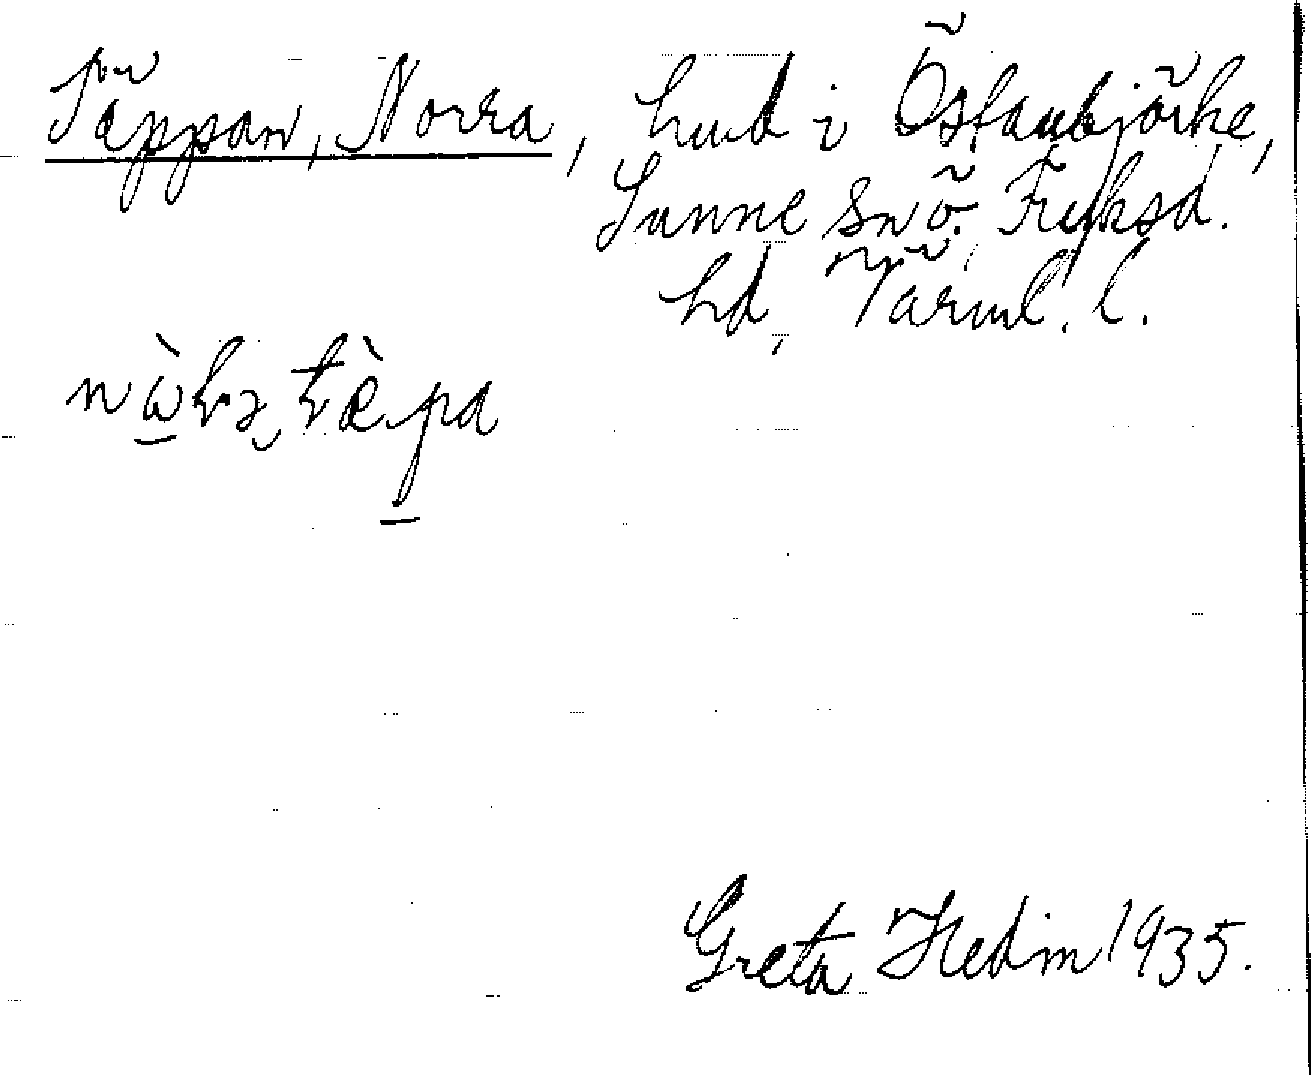 Täppan, Norra, hmd i Östanbjörke,
Sunne sn ö. Fryksd.
hd, Värml. l.
nὼrə tὲpa
Greta Hedin 1935.